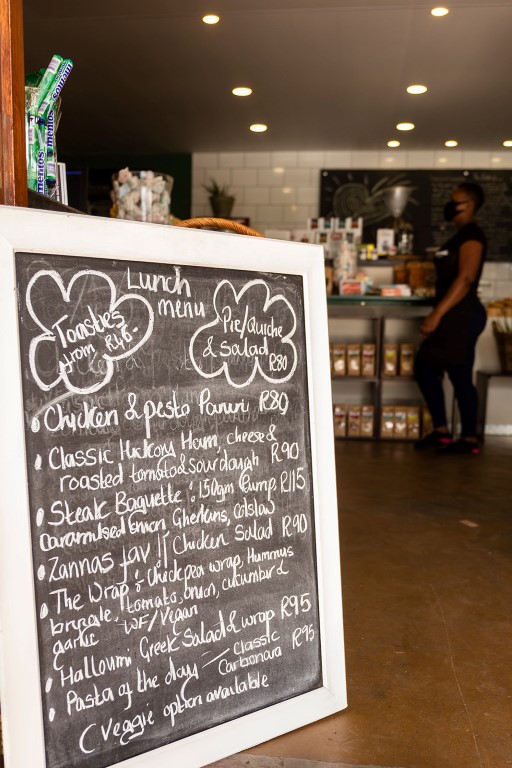 mentos
mentos
Lunch
menu
Toasties
from R46-
Pie/Quiche
& Salad
R80
• Chicken & pesto Panini R80
• Classic Hickory Ham, cheese &
roasted tomato & sourdough R90
• Steak Baguette : 150gm Rump R115
caramilised Onion Gherkins, colslaw
• Zannas fav !! Chicken Salad R90
• The Wrap : Chickpea wrap, Hummus
tomato, onion, cucumber &
garlic WF/Vegan
• Halloumi Greek Salad & wrap R95
• Pasta of the day – Classic
Carbonara R95
C Veggie option available